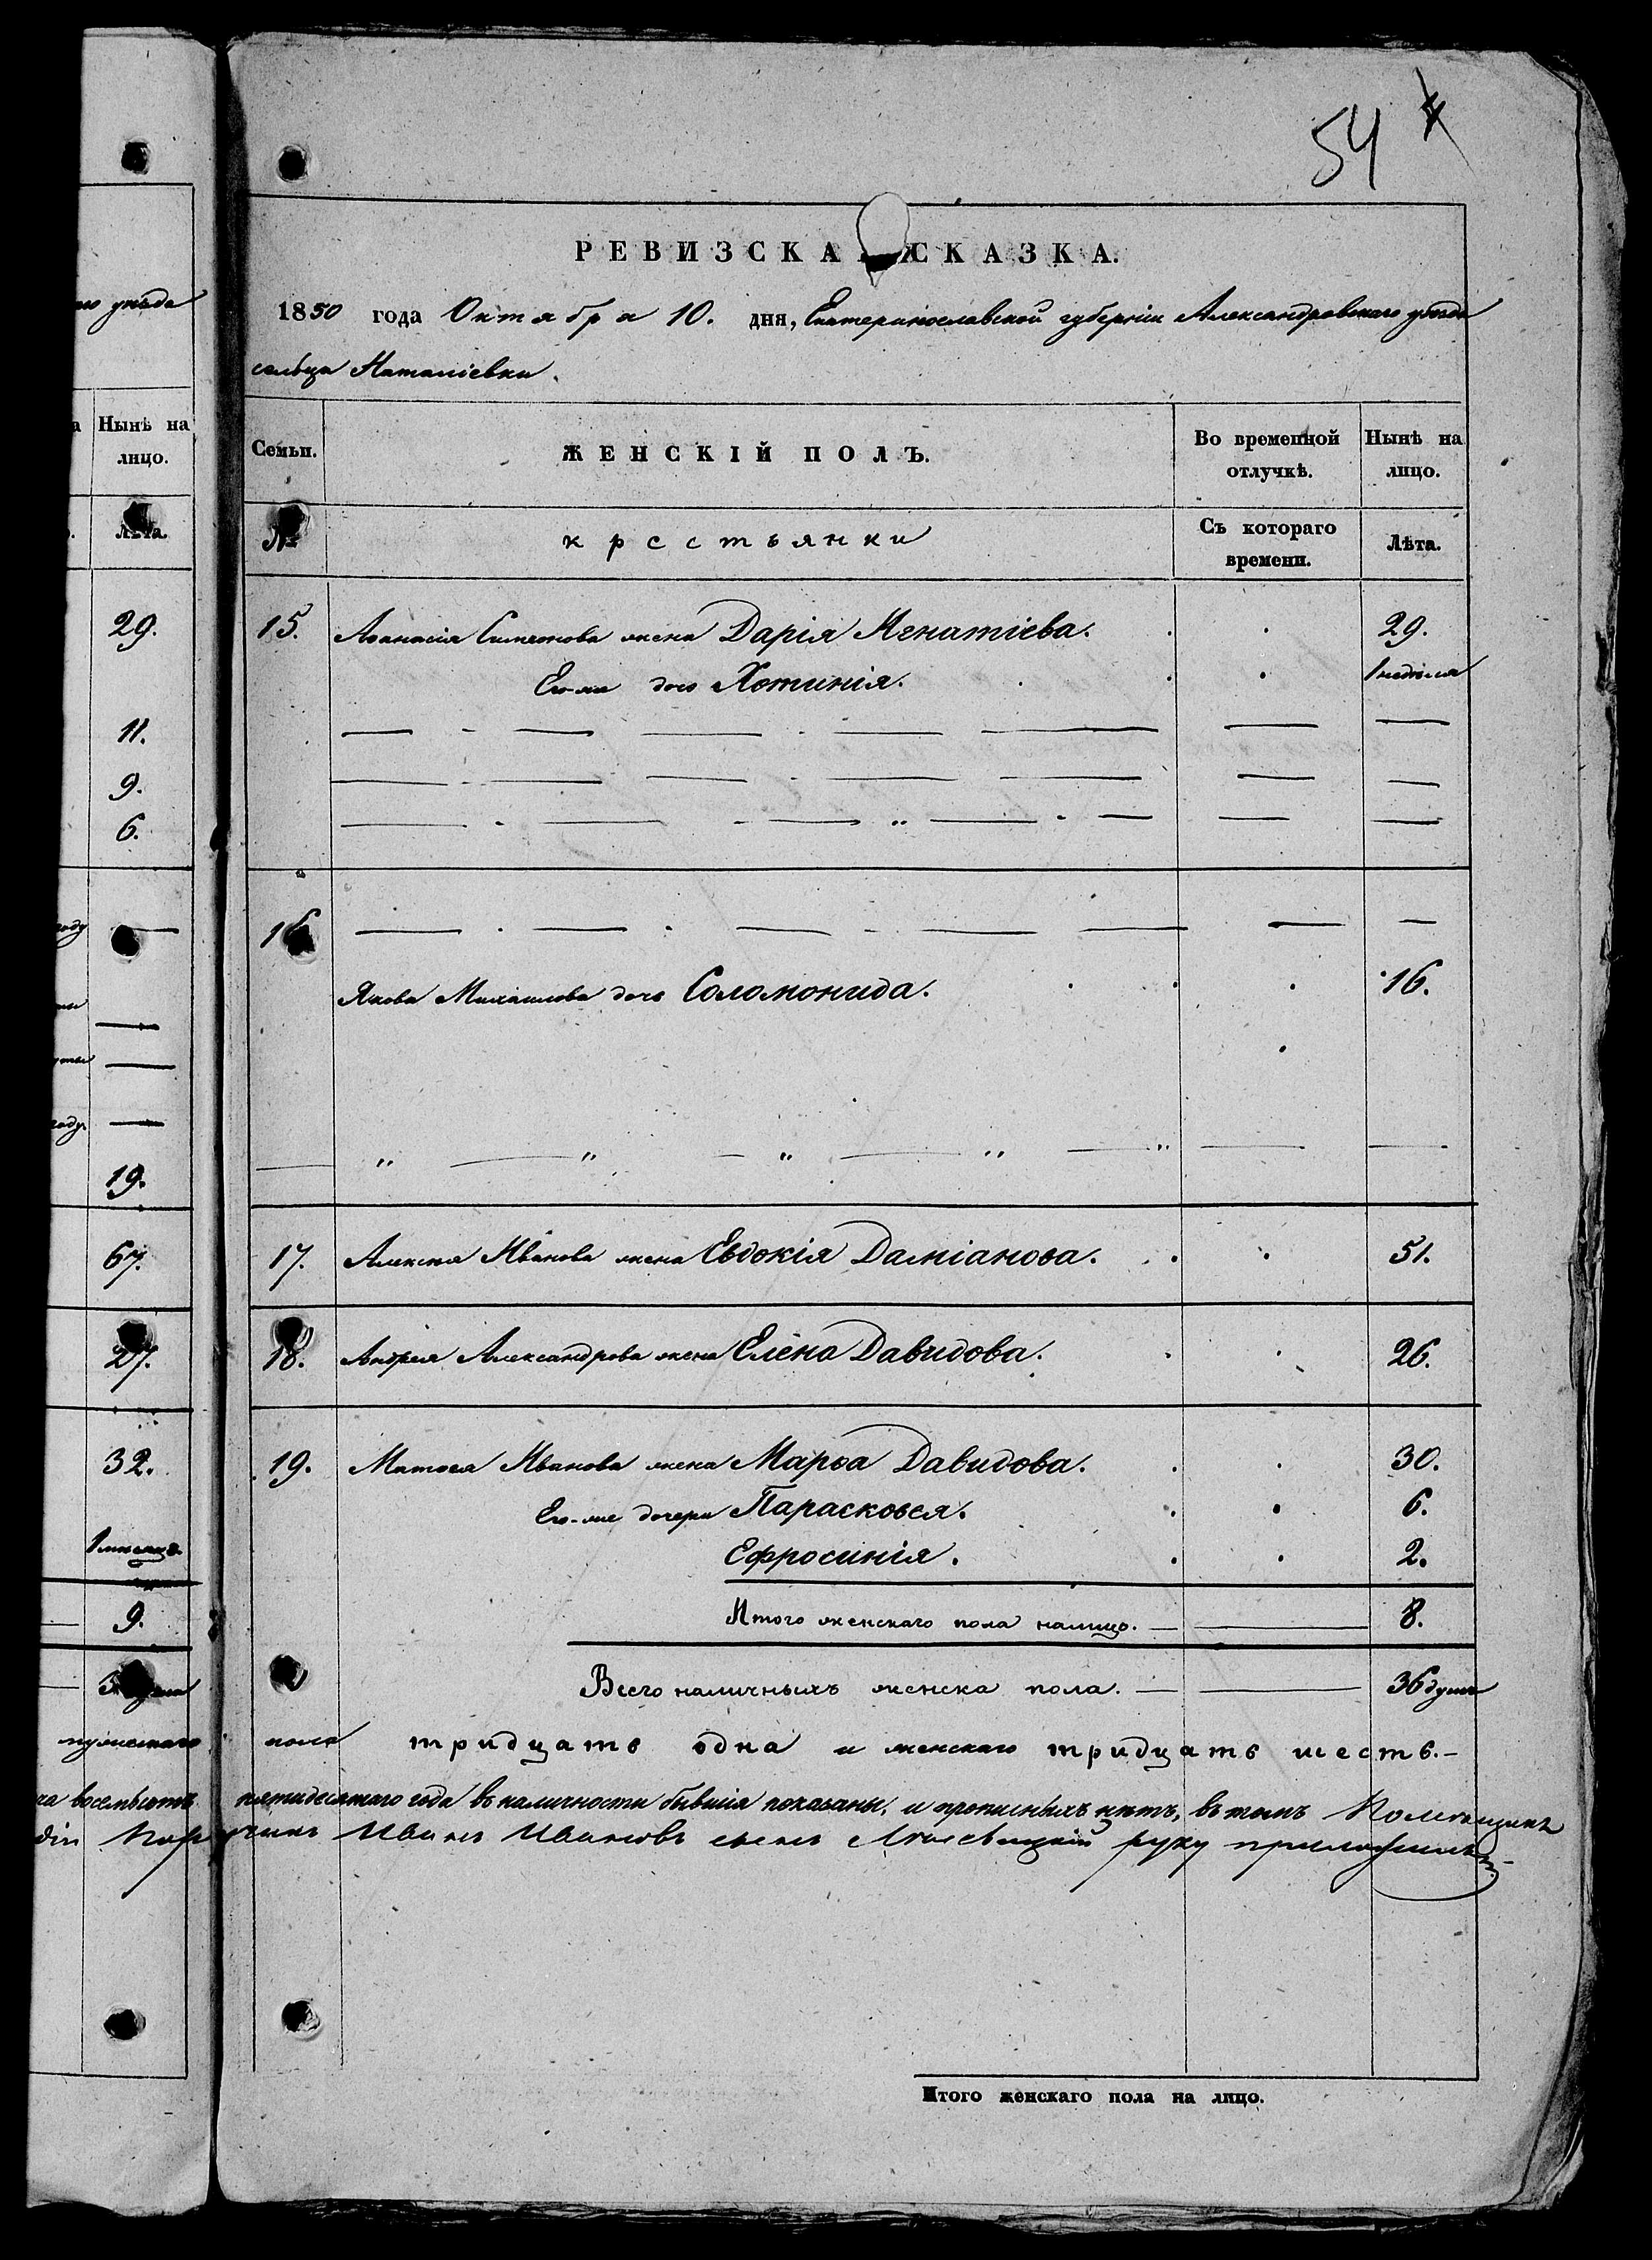 54
РЕВИЗСКА СКАЗКА.
1850 года Октября 10. дня, Екатеринославской губерніи Александровскаго уѣзда
сельца Наталіевки.
го уѣзда
Нынѣ на
лицо.
Лѣта.
29.
11.
9.
6.
году
году.
19.
67.
27.
32.
1 мѣсяцъ.
9.
Семьи. ЖЕНСКІЙ ПОЛЪ. Во временной Нынѣ на
отлучкѣ. лицо.
№ крестьянки Съ котораго Лѣта.
времени.
15. Аѳанасія Симеонова жена Дарія Игнатіева. 29.
Его-же дочь Хотинія. 1 недѣля
16
Якова Михаилова дочь Соломонида. 16.
17. Алексѣя Иванова жена Евдокія Даміанова. 51.
18. Андрея Александрова жена Елена Давидова. 26.
19. Матвея Иванова жена Марѳа Давидова. 30.
Его-же дочери Парасковея. 6.
Ефросинія. 2.
Итого женскаго пола налицо. 8.
Всего наличныхъ женска пола. 36 душъ
мужескаго пола тридцать одна и женскаго тридцать шесть.
восемьсотъ пятидесятаго года въ наличности бывшія показаны, и прописныхъ нѣтъ, въ томъ Помѣщикъ
Иванъ Ивановъ сынъ руку приложилъ
Итого женскаго пола на лицо.